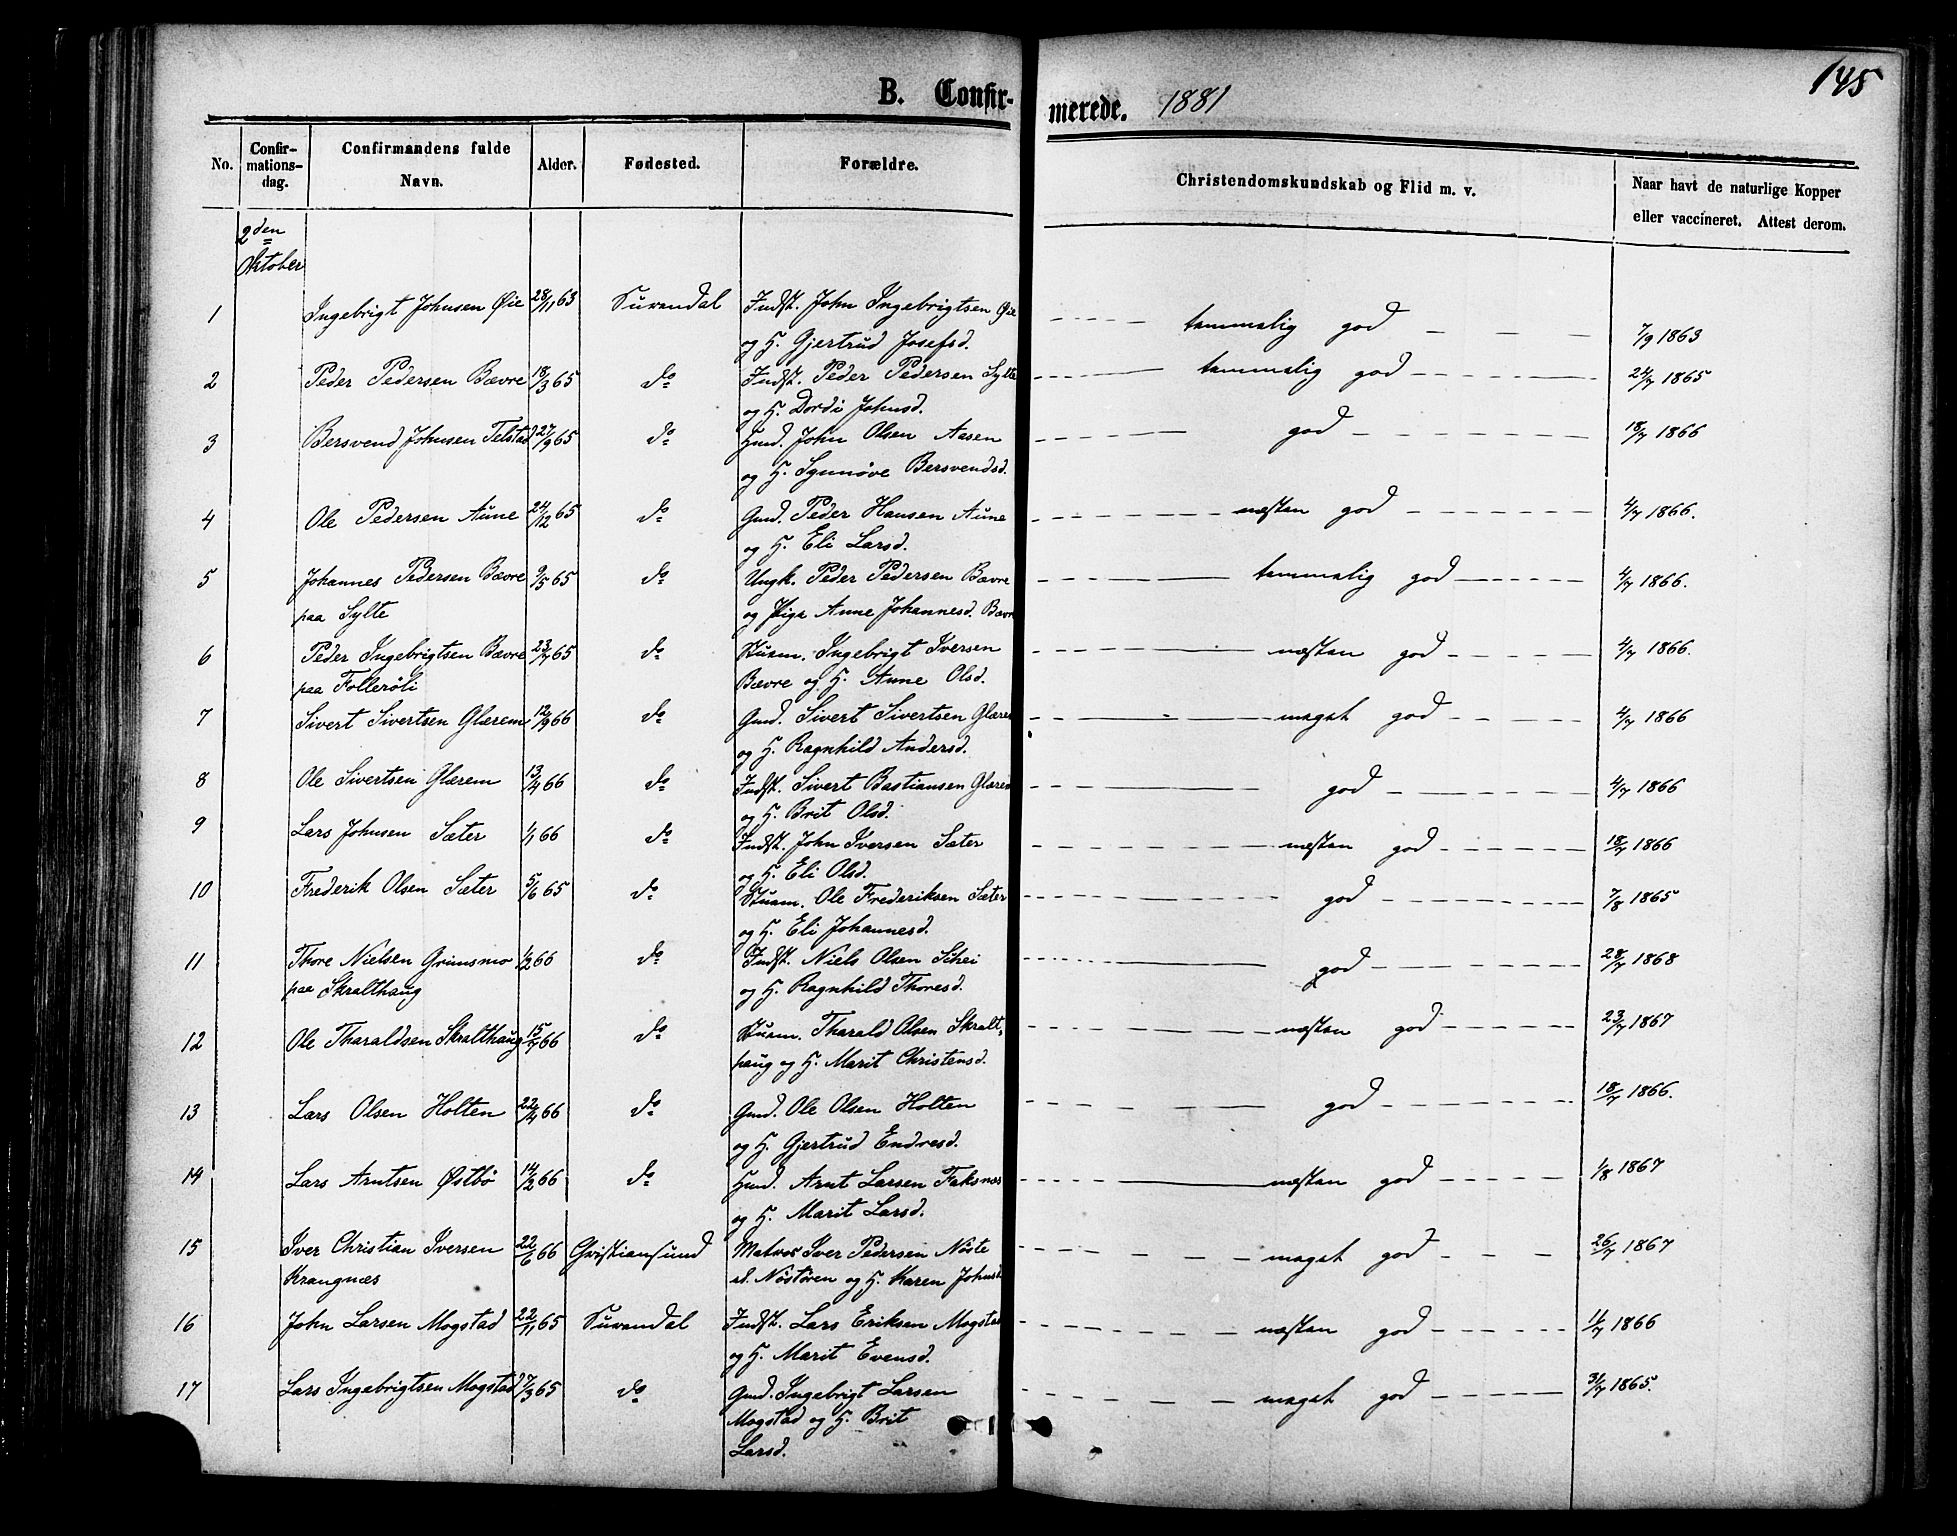 145
B. Confir-
merede. 1881
No.
Confir-
mations-
dag.
Confirmandens fulde
Navn.
Alder.
Fødested.
Forældre.
Christendomskundskab og Flid m. v.
Naar havt de naturlige Kopper
eller vaccineret. Attest derom.
2den
Oktober
1 Ingebrigt Johnsen Øie 28/11 63 Surendal Indst. John Ingebrigtsen Øie tammalig god 7/9 1863
og H. Gjertrud Josefsd.
2 Peder Pedersen Bævre 18/3 65 do Indst. Peder Pedersen Sylte tammalig god 24/7 1865
og H. Dordi Johnsd.
3 Bersvend Johnsen Telstad 27/9 65 do Gmd. John Olsen Aasen god 18/7 1866
og H. Synnøve Bersvendsd.
4 Ole Pedersen Aune 24/12 65 do Gmd. Peder Hansen Aune næsten god 4/7 1866.
og H. Eli Larsd.
5 Johannes Pedersen Bævre 9/5 65 do Ungk. Peder Pedersen Bævre tammalig god 4/7 1866.
paa Sylte og Pige Anne Johannesd. Bævre
6 Peder Ingebrigtsen Bævre 23/7 65 do Husm. Ingebrigt Iversen næsten god 4/7 1866.
paa Follerøli Bævre og H. Anne Olsd.
7 Sivert Sivertsen Glærem 12/9 66 do Gmd. Sivert Sivertsen Glærem meget god 4/7 1866
og H. Ragnhild Andersd.
8 Ole Sivertsen Glærem 13/4 66 do Indst. Sivert Bastiansen Glærem god 4/7 1866
og H. Brit Olsd.
9 Lars Johnsen Sæter 1/1 66 do Indst. John Iversen Sæter næsten god 18/7 1866
og H. Eli Olsd.
10 Frederik Olsen Sæter 5/6 65 do Husm. Ole Frederiksen Sæter god 7/8 1865
og H. Eli Johannesd.
11 Thore Nielsen Grimsmo 1/2 66 do Indst. Niels Olsen Schei god 28/7 1868
paa Skralthaug og H. Ragnhild Thoresd.
12 Ole Tharaldsen Skralthaug 15/7 66 do Husm. Tharald Olsen Skralt- næsten god 23/7 1867
haug og H. Marit Christensd.
13 Lars Olsen Holten 22/4 66 do Gmd. Ole Olsen Holten god 18/7 1866.
og H. Gjertrud Endresd.
14 Lars Arntsen Østbø 14/2 66 do Gmd. Arnt Larsen Faksnes næsten god 1/8 1867
og H. Marit Larsd.
15 Iver Christian Iversen 22/6 66 Christiansund Matros Iver Pedersen Nøste meget god 26/7 1867
Krangnæs el. Nøstøren og H. Karen Johnsd.
16 John Larsen Mogstad 22/11 65 Surendal Indst. Lars Eriksen Mogstad næsten god 11/7 1866
og H. Marit Evensd.
17 Lars Ingebrigtsen Mogstad 7/3 65 do Gmd. Ingebrigt Larsen meget god 31/7 1865.
Mogstad og H. Brit
Larsd.